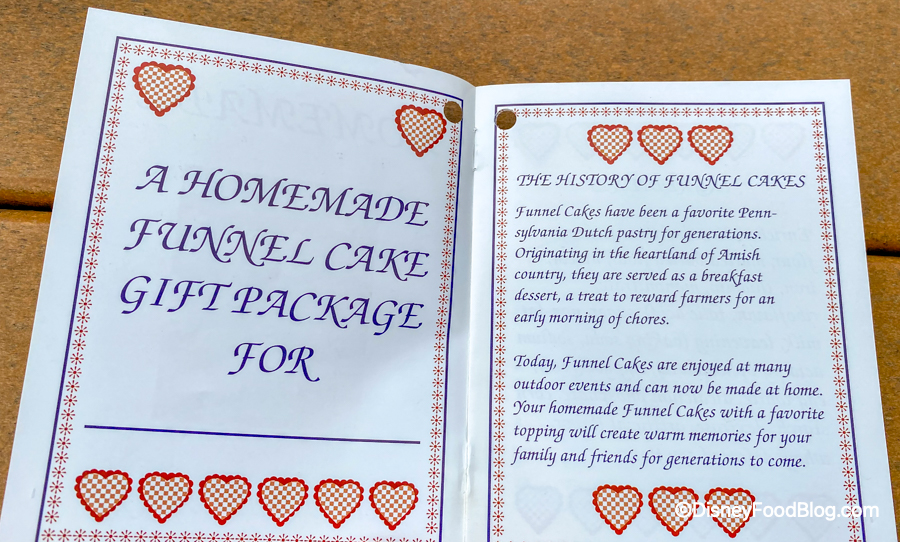 A HOMEMADE
FUNNEL CAKE
GIFT PACKAGE
FOR
THE HISTORY OF FUNNEL CAKES
Funnel Cakes have been a favorite Penn-
sylvania Dutch pastry for generations.
Originating in the heartland of Amish
country, they are served as a breakfast
dessert, a treat to reward farmers for an
early morning of chores.
Today, Funnel Cakes are enjoyed at many
outdoor events and can now be made at home.
Your homemade Funnel Cakes with a favorite
topping will create warm memories for your
family and friends for generations to come.
©DisneyFoodBlog.com